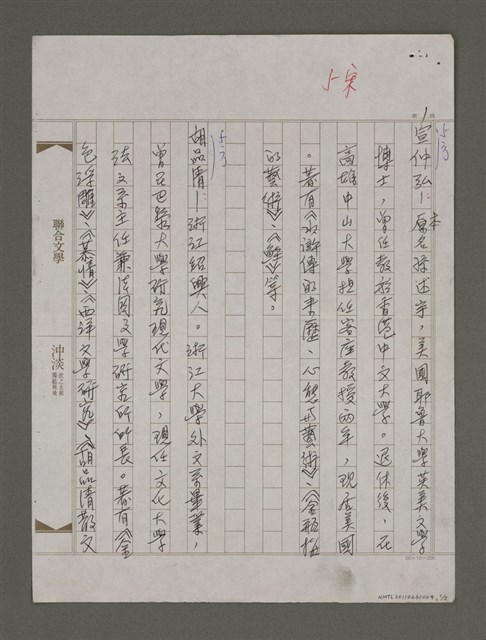 5宋
第1頁
5方
宣仲弘：原本名孫述宇，美國耶魯大學英美文學
博士，曾任教於香港中文大學。退休後，在
高雄中山大學擔任客座教授兩年，現居美國
。著有《水滸傳的來歷、心態与藝術》、《金瓶梅
的藝術》、《鮭》等。
5方
胡品清：浙江紹興人。浙江大學外文系畢業，
曾在巴黎大學研究現代文學，現任文化大學
法文系主任兼法國文學研究所所長。著有《金
色浮雕》《慕情》《西洋文學研究》、《胡品清散文
聯合文學
沖淡
NMTL20110661004